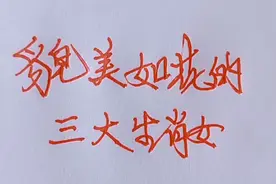 貌美如花的
三大生肖女